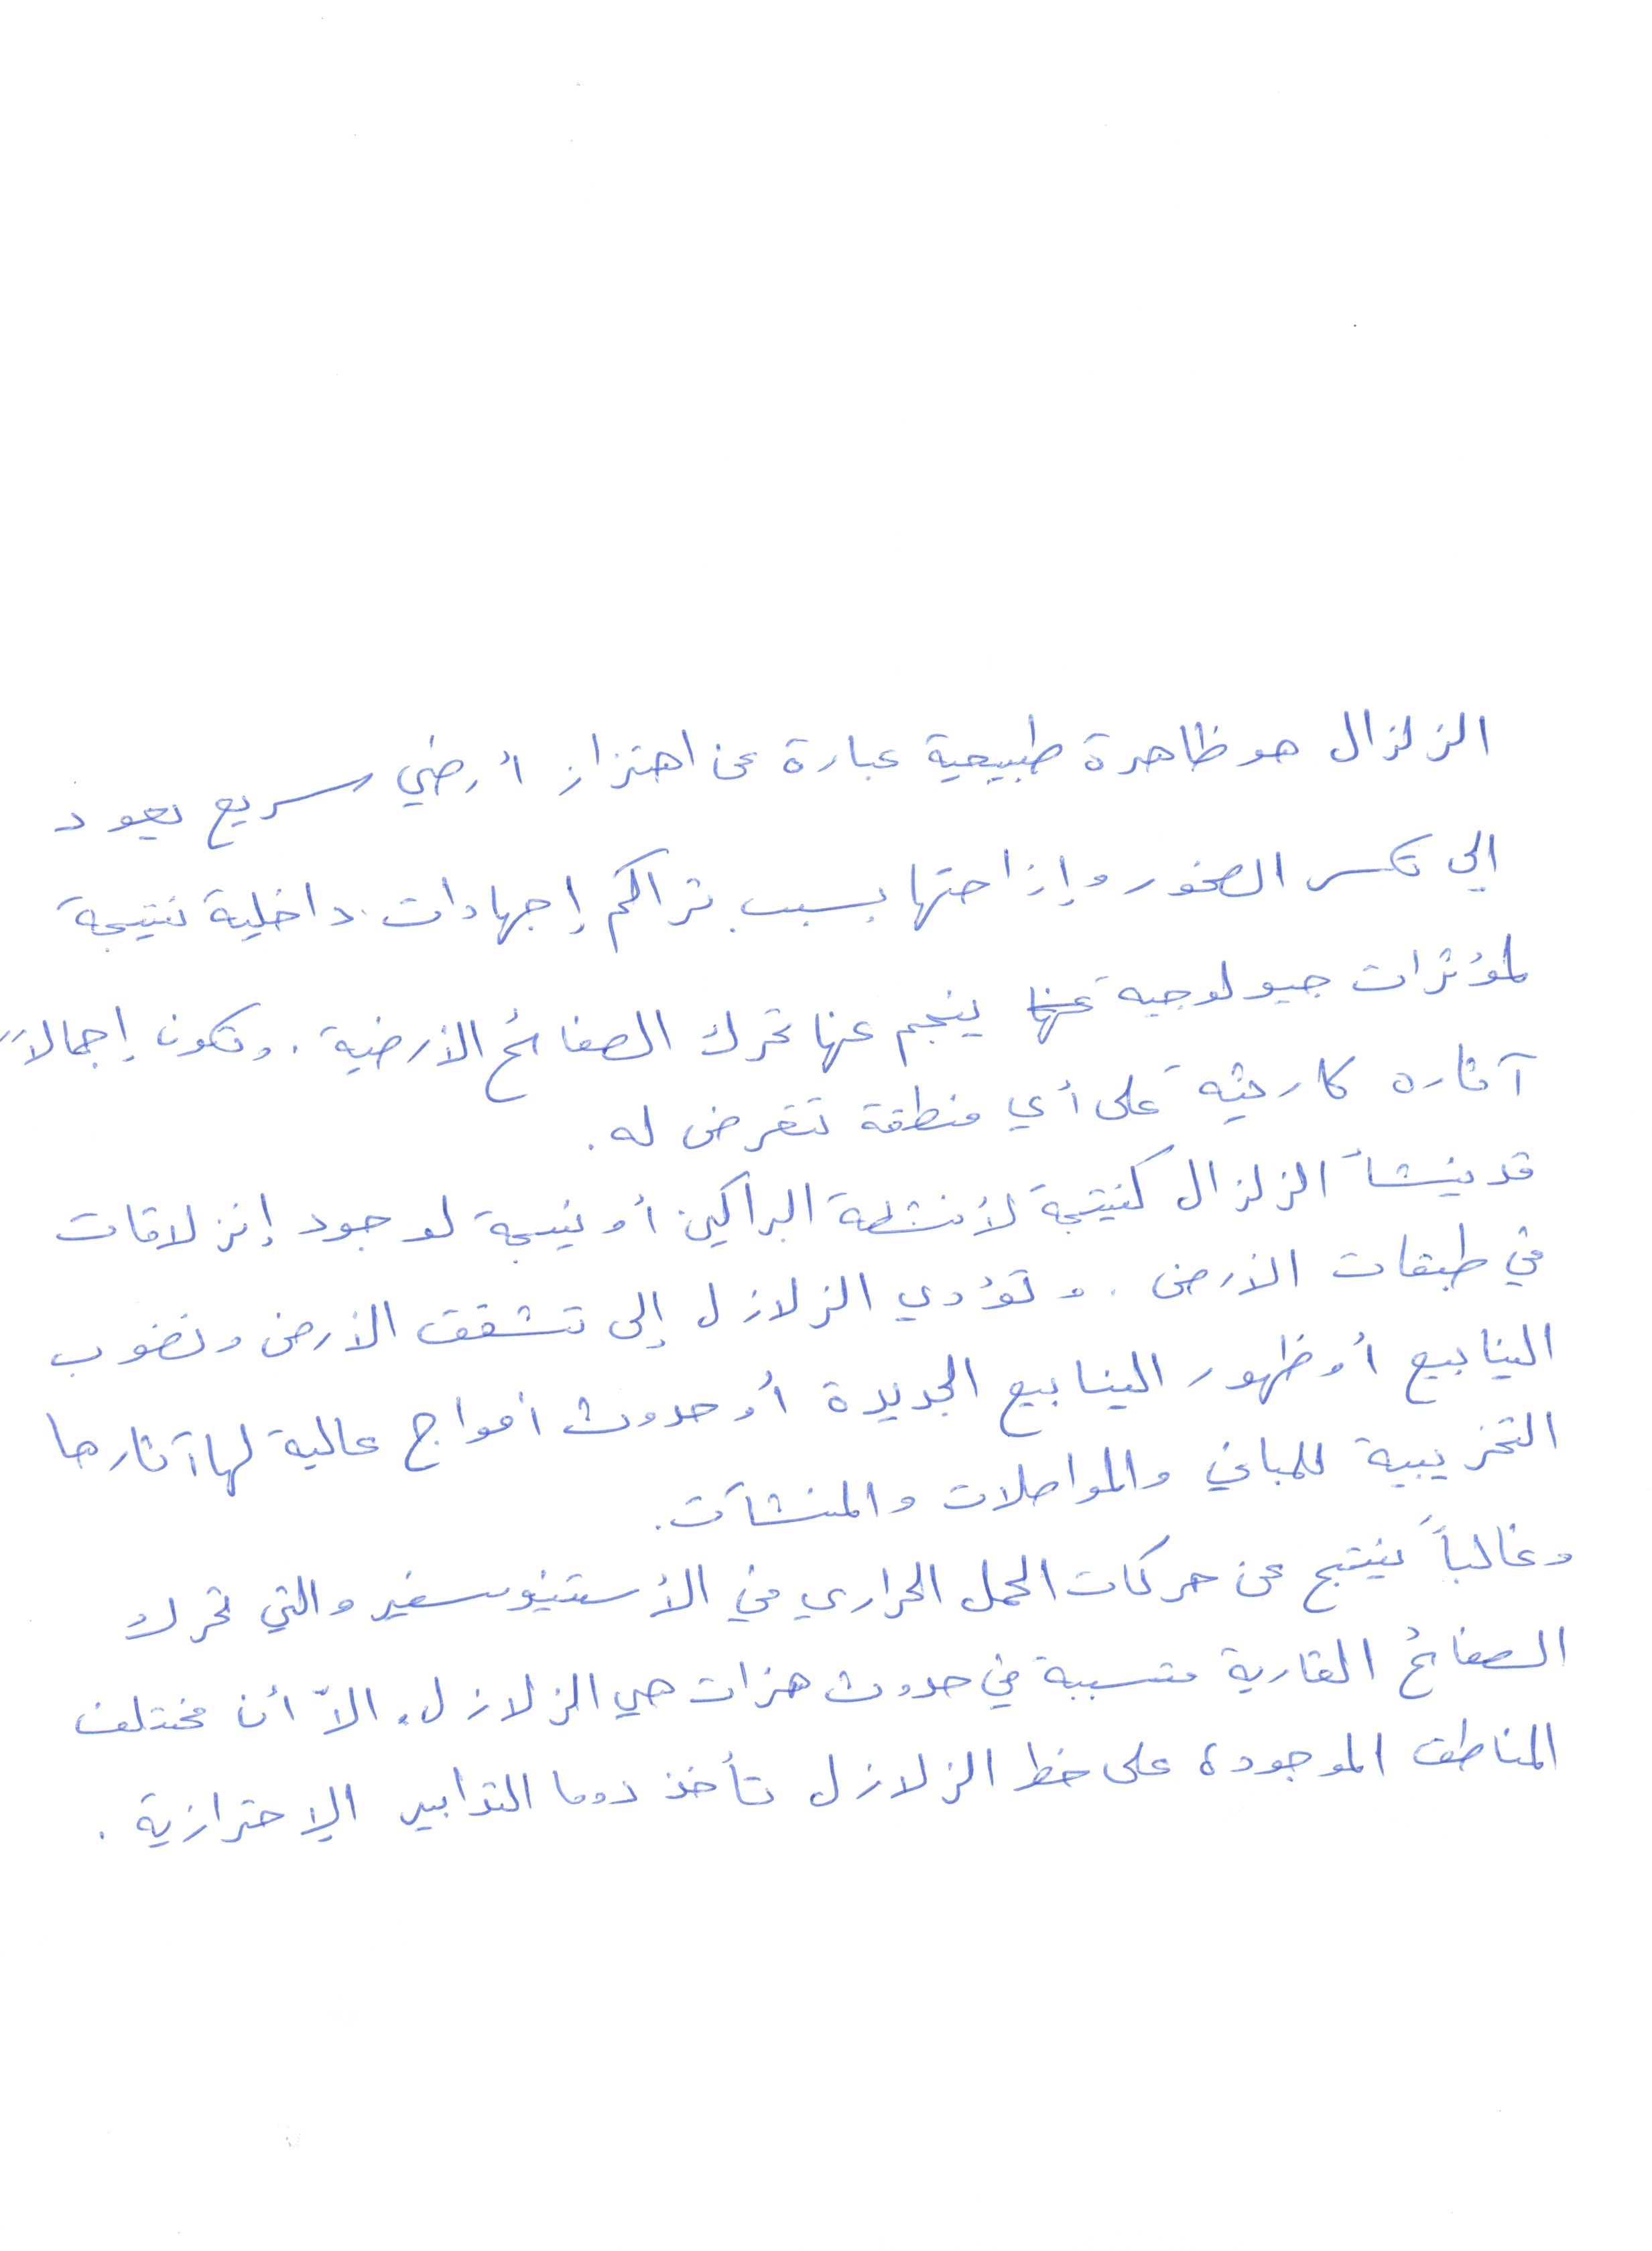 الزلزال هو ظاهرة طبيعية عبارة عن اهتزاز أرضي سريع يعود
الى تكسر الصخور وإزاحتها بسبب تراكم إجهادات داخلية نتيجة
لمؤثرات جيولوجية ينجم عنها تحرك الصفائح الأرضية. وتكون إجمالاً
آثاره كارثية على أي منطقة تتعرض له.
قد ينشأ الزلزال كنتيجة لأنشطة البراكين أو نتيجة لوجود إنزلاقات
في طبقات الأرض. وتؤدي الزلازل إلى تشقق الأرض ونضوب
الينابيع أو ظهور الينابيع الجديدة أو حدوث أمواج عالية لها آثارها
التخريبية للمباني والمواصلات والمنشآت.
وغالباً ينتج عن حركات الحمل الحراري في الأستينوسفير والتي تحرك
الصفائح القارية متسببة في حدوث هزات هي الزلازل. الاّ أن مختلف
المناطق الموجودة على خط الزلازل تأخذ دوما التدابير الإحترازية.